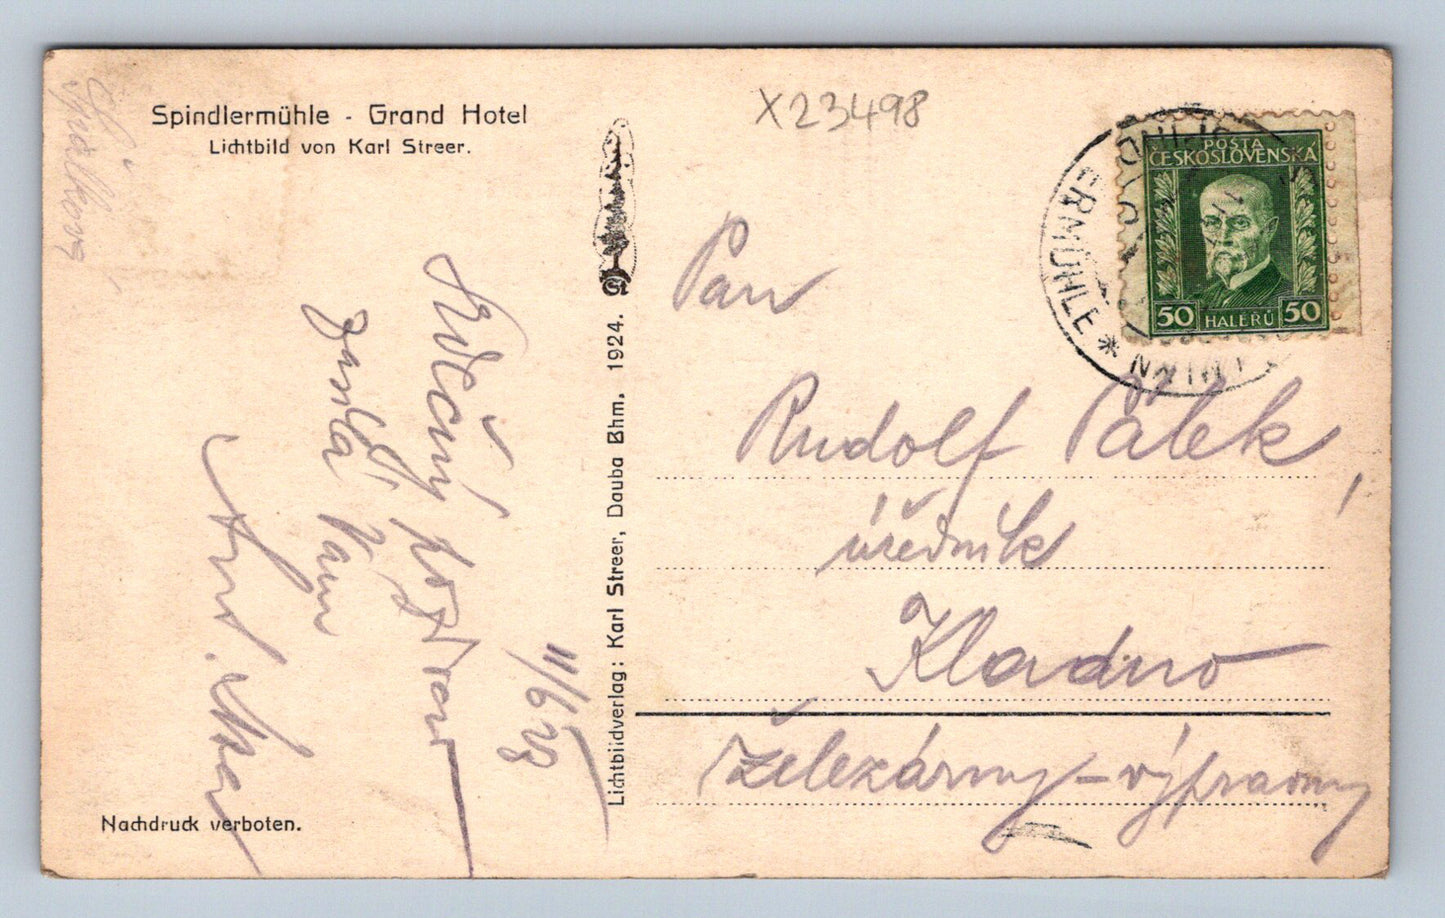 Spindlermühle - Grand Hotel
Lichtbild von Karl Streer.
X23498
POŠTA
ČESKOSLOVENSKÁ
50 HALÉŘŮ 50
ERMÜHLE *
Pan
Rudolf Pálek,
úředník
Kladno
Železárny - výpravny
Srdečný pozdrav
11/6 28
Lichtbildverlag: Karl Streer, Dauba Bhm. 1924.
Nachdruck verboten.